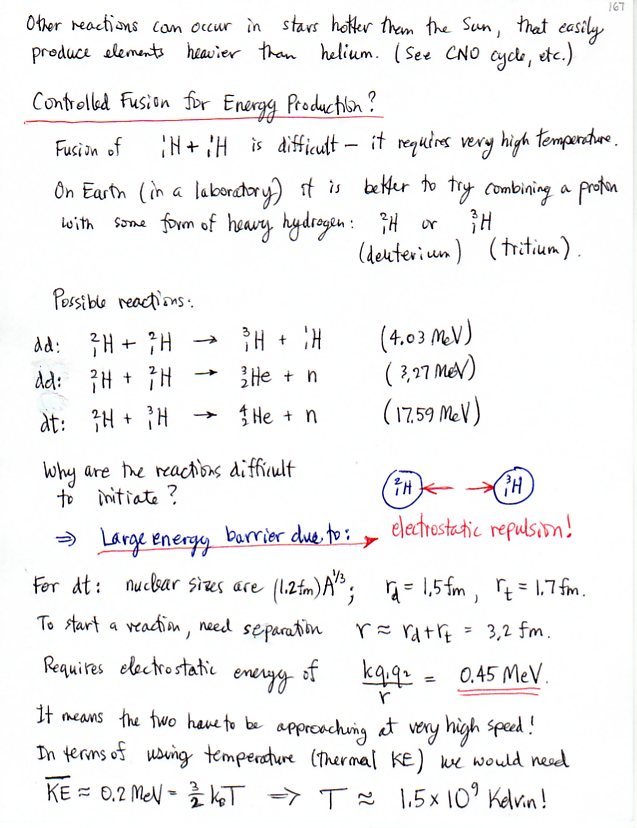 167
Other reactions can occur in stars hotter than the Sun, that easily
produce elements heavier than helium. (See CNO cycle, etc.)
Controlled Fusion for Energy Production?
Fusion of ¹₁H + ¹₁H is difficult – it requires very high temperature.
On Earth (in a laboratory) it is better to try combining a proton
with some form of heavy hydrogen: ²₁H or ³₁H
(deuterium) (tritium).
Possible reactions:
dd: ²₁H + ²₁H → ³₁H + ¹₁H (4.03 MeV)
dd: ²₁H + ²₁H → ³₂He + n (3.27 MeV)
dt: ²₁H + ³₁H → ⁴₂He + n (17.59 MeV)
Why are the reactions difficult
to initiate?
²₁H ³₁H
⇒ Large energy barrier due to: electrostatic repulsion!
For dt: nuclear sizes are (1.2fm)A^1/3; r_d = 1.5fm, r_t = 1.7fm.
To start a reaction, need separation r ≈ r_d + r_t = 3.2 fm.
Requires electrostatic energy of kq₁q₂/r = 0.45 MeV.
It means the two have to be approaching at very high speed!
In terms of using temperature (thermal KE) we would need
K̅E̅ ≈ 0.2 MeV = 3/2 k_BT ⇒ T ≈ 1.5 x 10⁹ Kelvin!